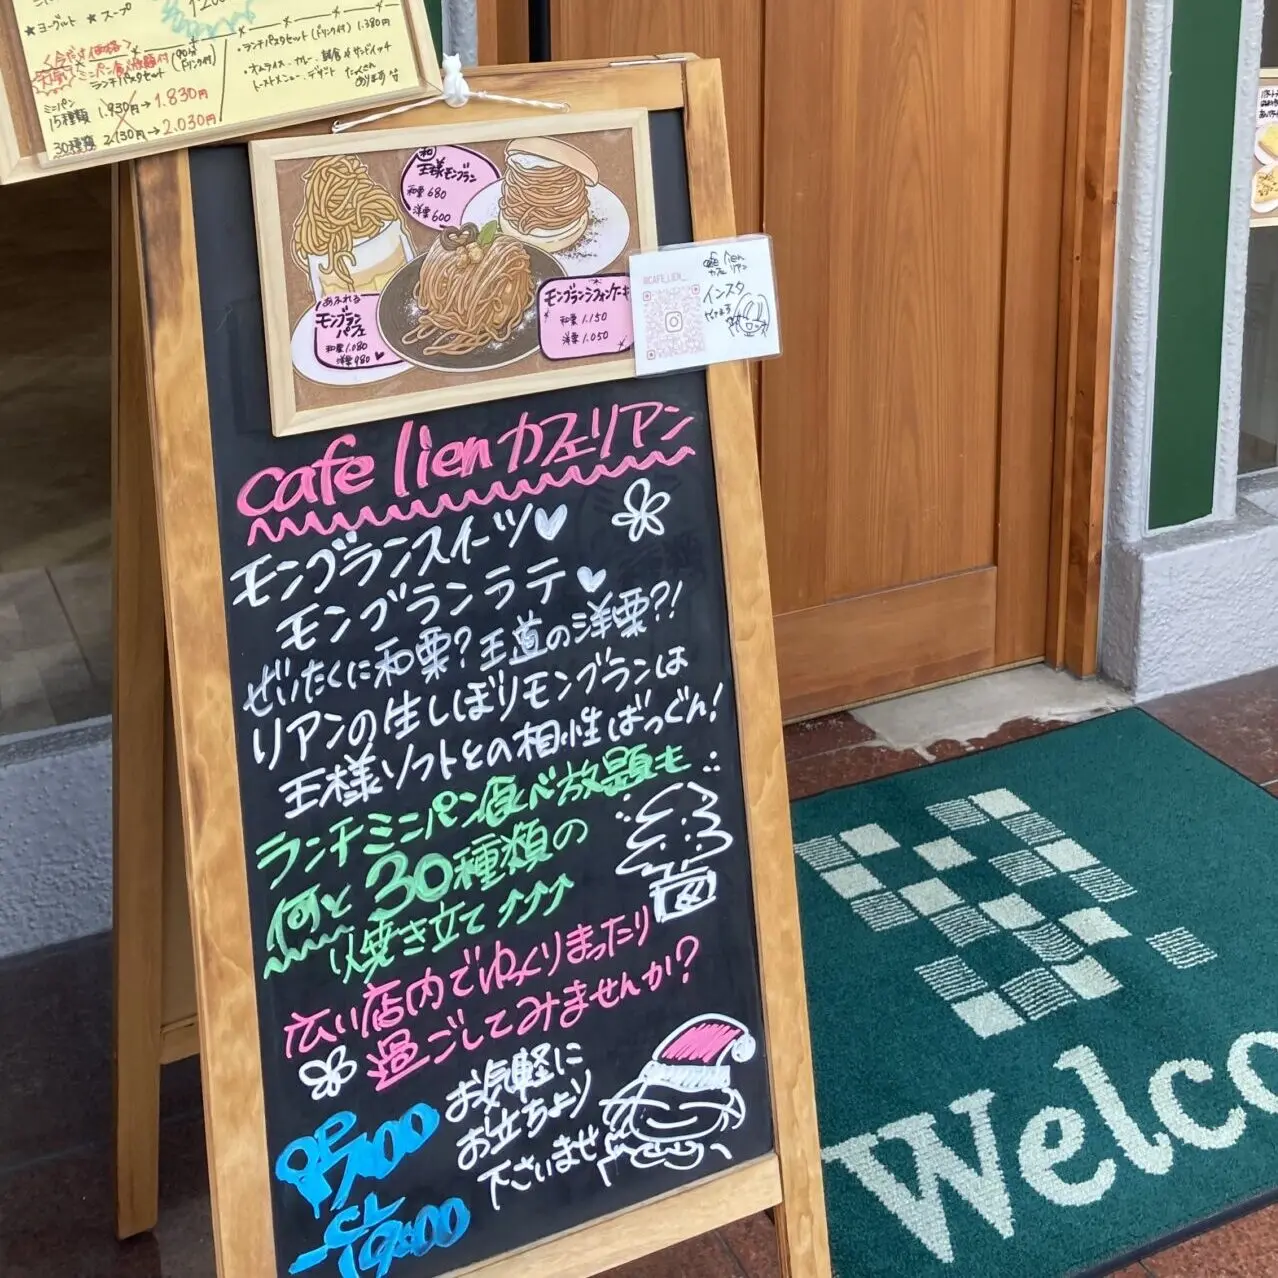 ★ヨーグルト ★スープ
<今だけ価格>
ミニパン食べ放題付(90分)
ランチパスタセット(ドリンク付)
ミニパン
15種類 1.930円→1.830円
30種類 2.130円→2.030円
・ランチパスタセット(ドリンク付) 1.380円
・オムライス、カレー、軽食、サンドイッチ
トーストメニュー、デザート たくさん
あります
和
王様モンブラン
和栗 680
洋栗 600
あふれる
モンブラン
パフェ
和栗 1.080
洋栗 980
モンブランシフォンケーキ
和栗 1.150
洋栗 1.050
@CAFE_LIEN_
cafe lien
カフェ リアン
インスタ
やってます
cafe lien カフェリアン
モンブランスイーツ♡
モンブランラテ♡
ぜいたくに和栗?王道の洋栗?!
リアンの生しぼりモンブランは
王様ソフトとの相性ばっぐん!
ランチミニパン食べ放題も
何と30種類の
焼き立て↑↑↑
広い店内でゆっくりまったり
過ごしてみませんか?
お気軽に
お立ちより
下さいませ
OP
7:00
CL
19:00
Welco